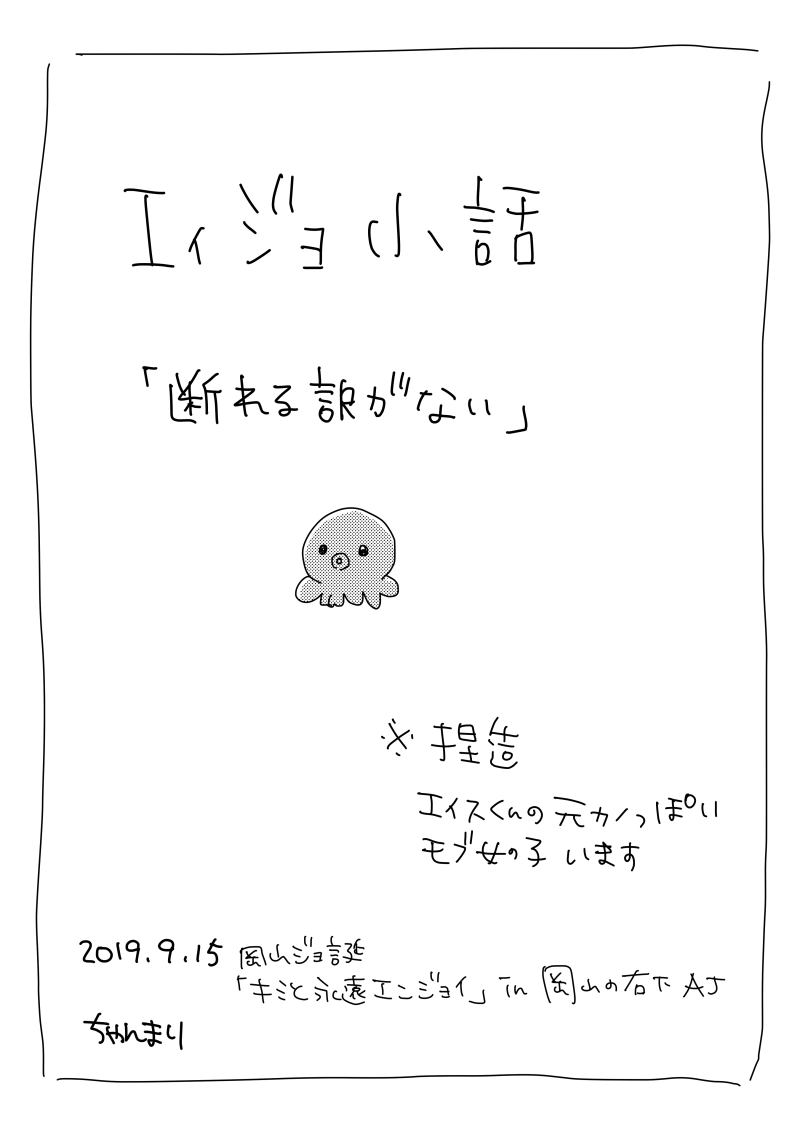 エィジョ小話
「断れる訳がない」
※捏造
エイスくんの元カノっぽい
モブ女の子 います
2019.9.15 岡山ジョ誕
「キミと永遠エンジョイ」in 岡山の右下 AJ
ちゃんまり